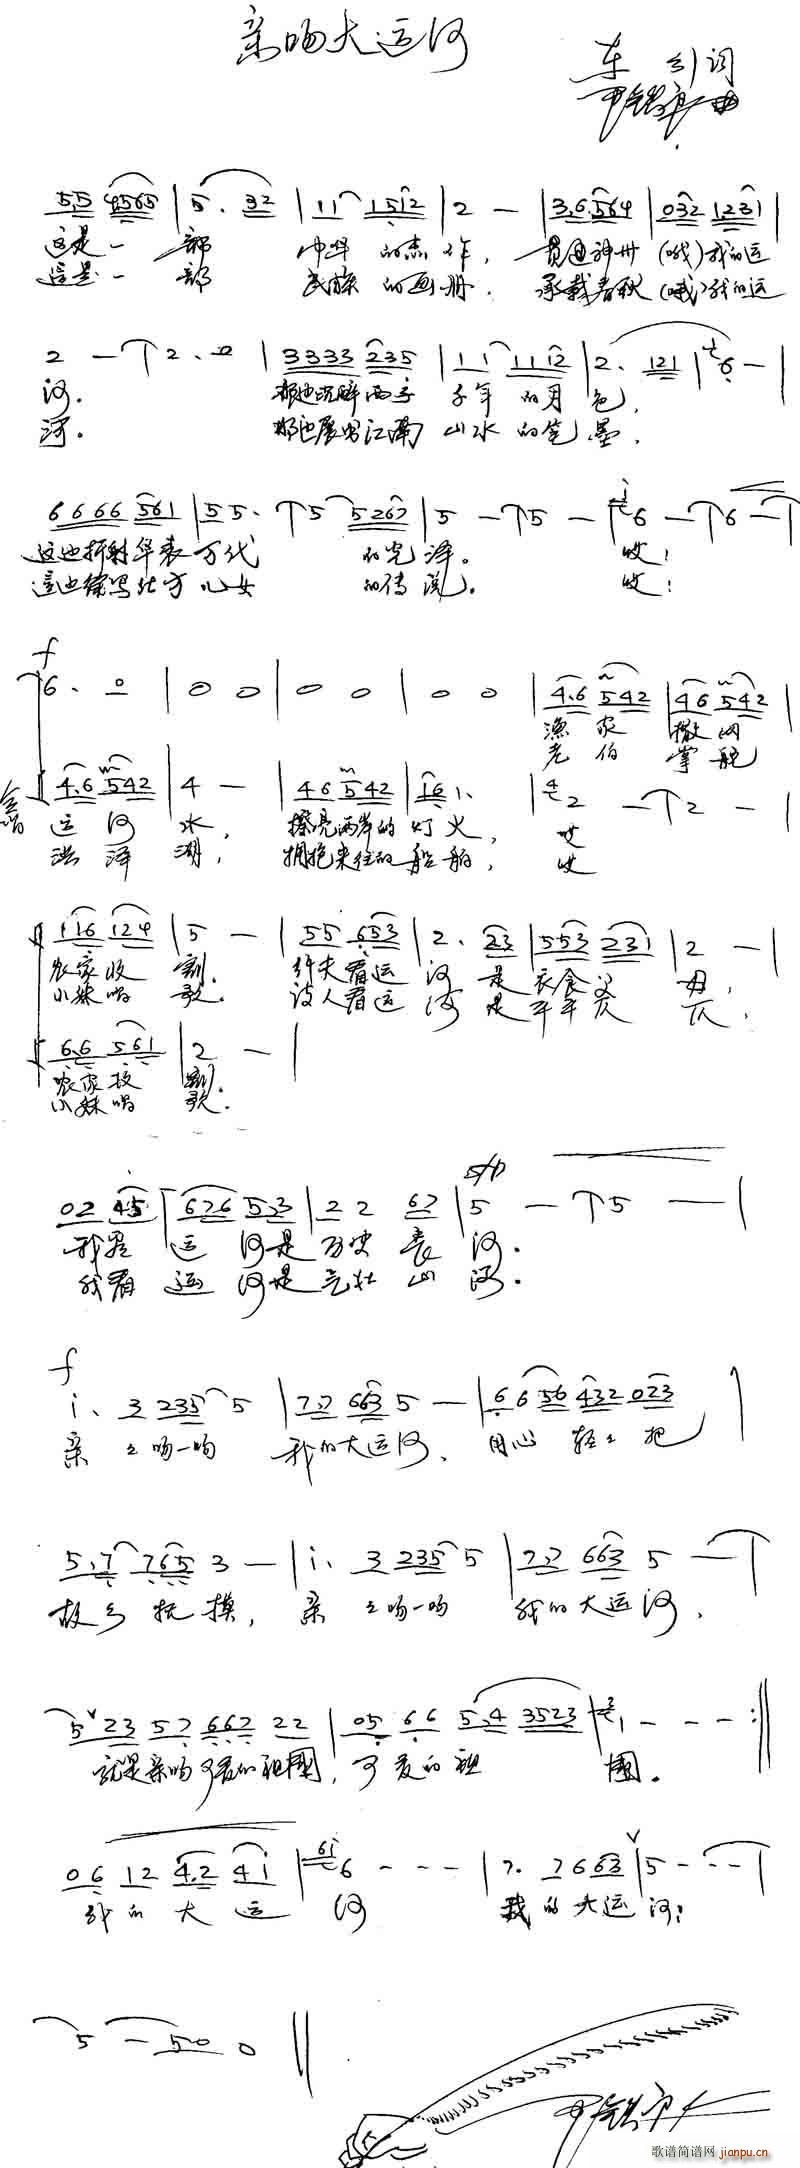 亲吻大运河
词
尹铁良曲
5.5 4565 | 5. 32 | 11 1512 | 2 — | 3.6 564 | 032 1231 |
这是一 部 中华 的杰作, 贯通神州 (哦)我的运
这是一 部 民族 的画册. 承载春秋 (哦)我的运
2 — | 2. 0 | 3333 235 | 11 1112 | 2. 121 | 6 — |
河. 那边沉醉两岸 千年 的月 色,
河. 那边展露江南 山水 的笔 墨,
6666 561 | 55. | 5 5267 | 5 — | 5 — | 6 — | 6 — |
这边折射华表万代 的光泽。 哎!
这边续写北方儿女 的传说. 哎!
f
6. 0 | 0 0 | 0 0 | 0 0 | 4.6 542 | 46 542 |
渔家 撒网
老伯 掌舵
4.6 542 | 4 — | 46 542 | 16 1. | 2 — | 2 — |
运河 水, 擦亮两岸的灯火, 哎
洪泽 湖, 拥抱来往的船舶, 哎
116 124 | 5 — | 55 653 | 2. 23 | 553 231 | 2 — |
农家收 割. 纤夫看运 河 是 衣食父 母,
小妹唱 歌. 诗人看运 河 是 平平仄 仄,
6.6 561 | 2 — |
农家收 割.
小妹唱 歌.
02 45 | 676 5.3 | 22 67 | 5 — | 5 — |
我看 运 河是历史 长 河.
我看 运 河是气壮 山 河.
f
i. 3 235 5 | 7.7 663 5 — | 66 56 432 023 |
亲 々吻一吻 我的大运河, 用心 轻々把
5.7 765 3 — | i. 3 235 5 | 7.7 663 5 — |
故乡抚摸, 亲 々吻一吻 我的大运河,
5 23 57 667 22 | 05 66 5.4 3523 | 1 - - - :||
就是亲吻可爱的祖国, 可爱的祖 国。
06 12 4.2 4i | 6 - - - | 7. 7663 | 5 - - - |
我的大运 河 我的大运 河!
5 — 50 0 ||
尹铁良
歌谱简谱网 jianpu.cn